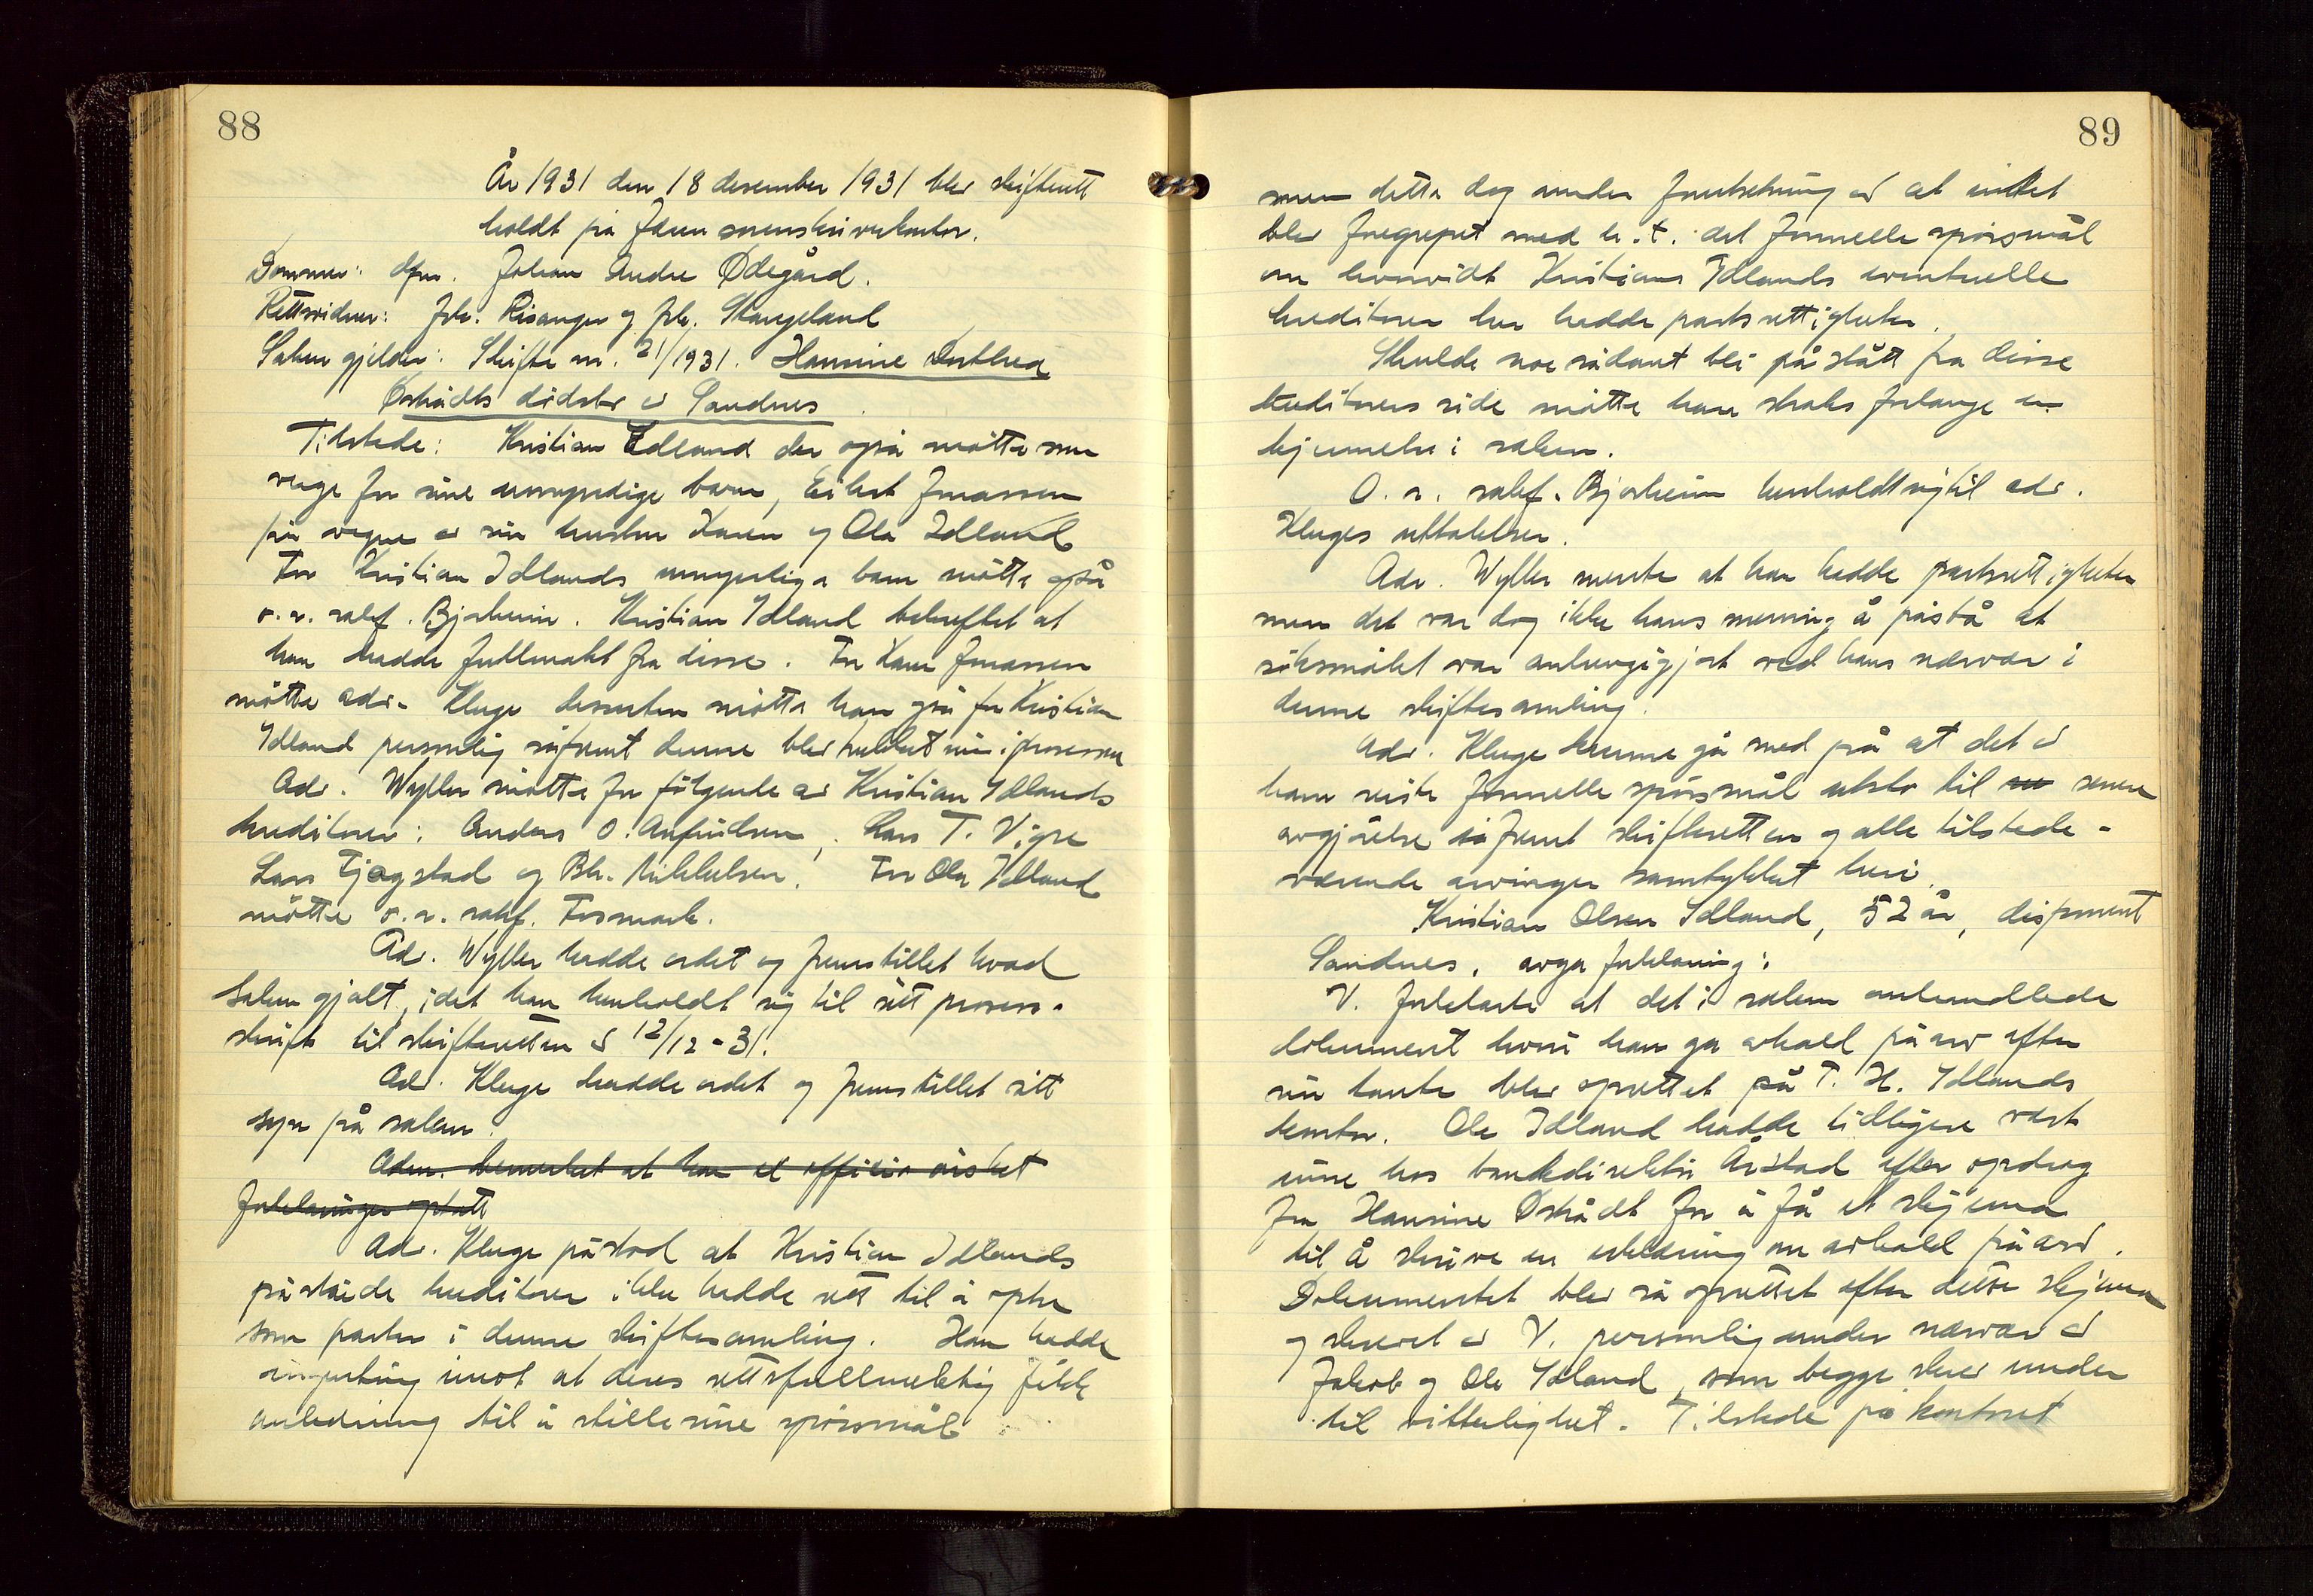 88
År 1931 den 18 desember 1931 blev skifterett
holdt på Jæren sorenskriverkontor.
Dommer: dfm. Johan Andre Ødegård.
Rettsvidner: frk. Risanger og frk. Stangeland
Saken gjelder: Skifte nr. 21/1931. Hansine Dorthea
Østrådts dødsbo av Sandnes.
Tilstede: Kristian Idland der også møtte som
verge for sine umyndige barn, Eilert Jonassen
på vegne av sin hustru Karen og Ola Idland
For Kristian Idlands umyndige barn møtte også
o.r. sakf. Bjorheim. Kristian Idland bekreftet at
han hadde fullmakt fra disse. For Karen Jonassen
møtte adv. Kluge dessuten møtte han også for Kristian
Idland personlig såfremt denne blev trukket inn i prosessen
Adv. Wyller møtte for følgende av Kristian Idlands
kreditorer: Anders O. Anfindsen, Lars T. Vigre
Lars Tjågstad og Br. Mikkelsen. For Ola Idland
møtte o.r. sakf. Fosmark.
Adv. Wyller hadde ordet og fremstillet hvad
saken gjalt, idet han henholdt sig til sitt prosess-
skrift til skifteretten av 12/12-31.
Adv. Kluge hadde ordet og fremstillet sitt
syn på saken.
Adm. bemerket at han ex officio ønsket
forklaringer optatt
Adv. Kluge påstod at Kristian Idlands
påståede kreditorer ikke hadde rett til å optre
som parter i denne skiftesamling. Han hadde
ingenting imot at deres rettsfullmektig fikk
anledning til å stille sine spørsmål
89
men dette dog under forutsetning av at intet
blev foregrepet med h.t. det formelle spørsmål
om hvorvidt Kristians Idlands eventuelle
kreditorer her hadde partsrettigheter.
Skulde noe sådant bli påstått fra disse
kreditorers side måtte han straks forlange en
kjennelse i saken.
O.r. sakf. Bjorheim henholdt sig til adv.
Kluges uttalelser.
Adv. Wyller mente at han hadde partsrettigheter
men det var dog ikke hans mening å påstå at
søksmålet var anhengiggjort ved hans nærvær i
denne skiftesamling.
Adv. Kluge kunne gå med på at det av
ham reiste formelle spørsmål utstod til senere
avgjørelse såfremt skifteretten og alle tilstede-
værende arvinger samtykket heri.
Kristian Olsen Idland, 52 år, disponent
Sandnes, avga forklaring:
V. forklarte at det i saken omhandlede
dokument hvori han ga avkall på arv efter
sin tante blev oprettet på T. H. Idlands
kontor. Ole Idland hadde tidligere vært
inne hos bankdirektør Årstad efter opdrag
fra Hansine Østrådt for å få et skjema
til å skrive en erklæring om avkall på arv.
Dokumentet blev så oprettet efter dette skjema
og skrevet av V. personlig under nærvær av
Jakob og Ole Idland, som begge skrev under
til vitterlighet. Tilstede på kontoret